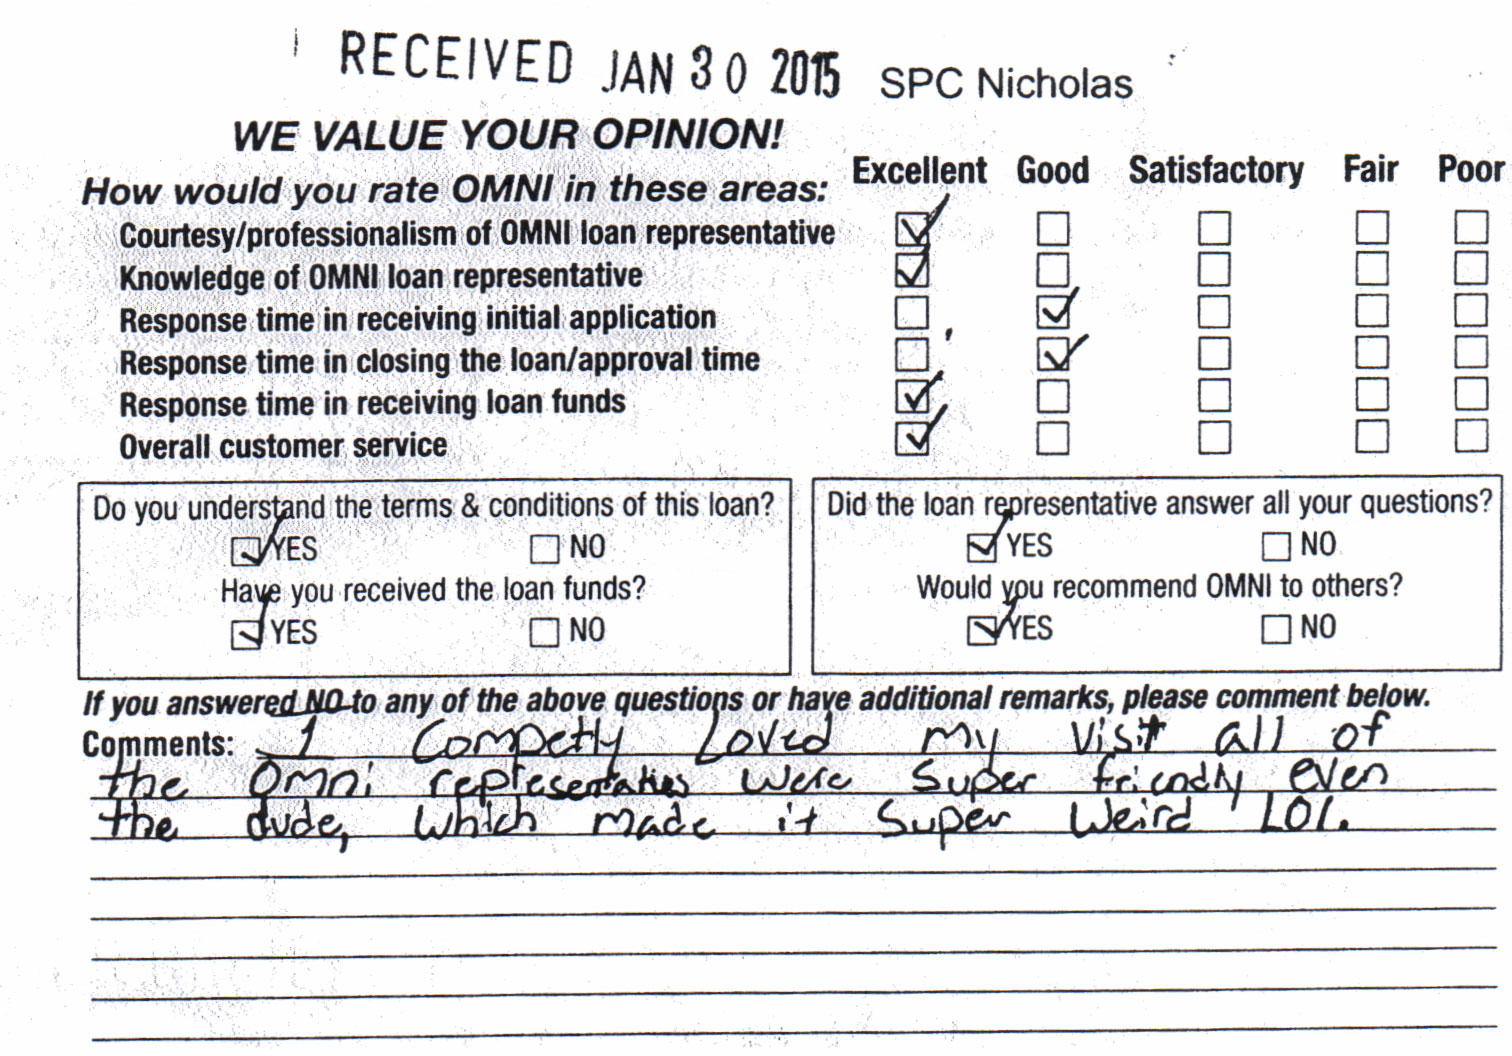 RECEIVED JAN 30 2015 SPC Nicholas
WE VALUE YOUR OPINION!
How would you rate OMNI in these areas: Excellent Good Satisfactory Fair Poor
Courtesy/professionalism of OMNI loan representative
Knowledge of OMNI loan representative
Response time in receiving initial application
Response time in closing the loan/approval time
Response time in receiving loan funds
Overall customer service
Do you understand the terms & conditions of this loan?
YES NO
Have you received the loan funds?
YES NO
Did the loan representative answer all your questions?
YES NO
Would you recommend OMNI to others?
YES NO
If you answered NO to any of the above questions or have additional remarks, please comment below.
Comments: I Competly Loved my visit all of
the Omni representaties were super friendly even
the dude, which made it super weird LOL.